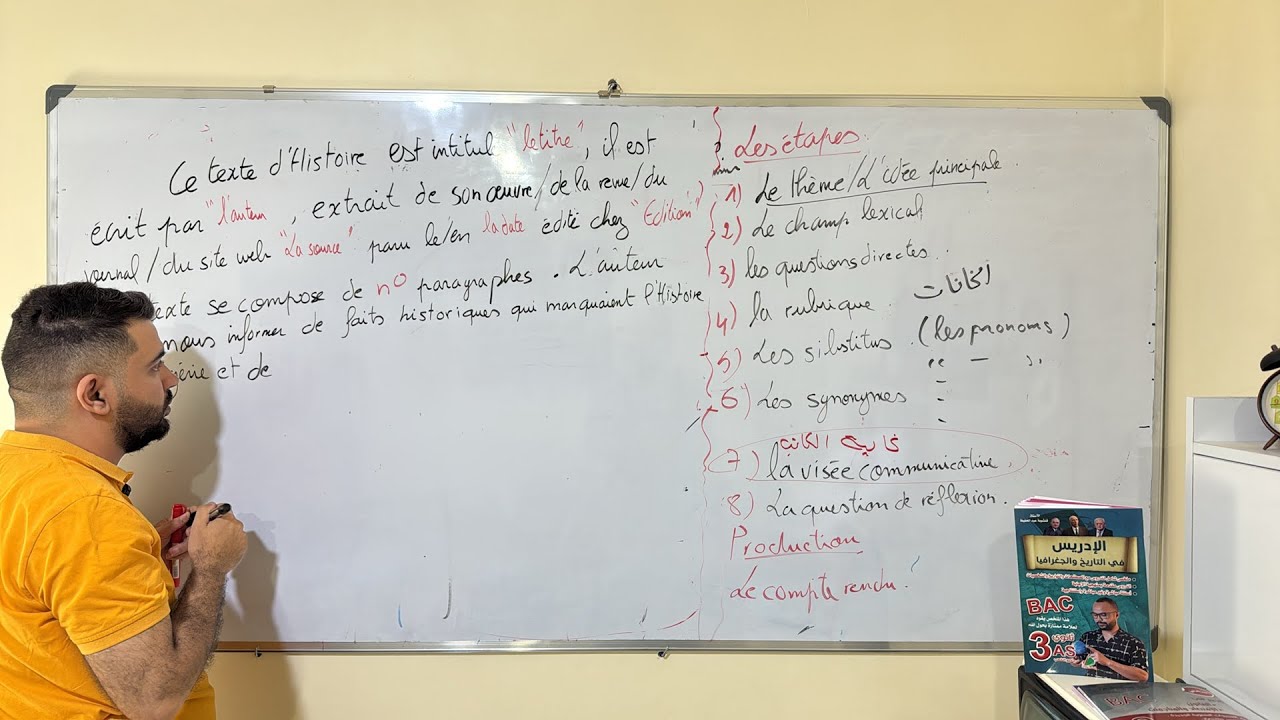 Ce texte d'Histoire est intitul "le titre", il est
écrit par "l'auteur , extrait de son œuvre/de la revue/du
journal/du site web "La source" paru le/en la date édité chez "Edition")
texte se compose de n° paragraphes. L'auteur
nous informer de faits historiques qui marquaient l'Histoire
et de
Les étapes
1) Le thème/L'idée principale.
2) Le champ lexical
3) les questions directes.
4) la rubrique. الخانات
5) Les substitus. (les pronoms)
6) Les synonymes
غاية الكاتب
7) la visée communicative.
8) La question de réflexion.
Production
Le compte rendu.
الإدريس
في التاريخ والجغرافيا
BAC
هذا الملخص يقوه
لعلامة ممتازة بحول الله
3 ثانوي
AS
BAC